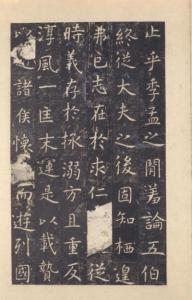 止乎季孟之閒羞論五伯
終從大夫之後固知栖遑
弗已志在於求仁從
時義存於拯溺方且重反
淳風一匡末運是以載贄
以諸侯懷而遊列國